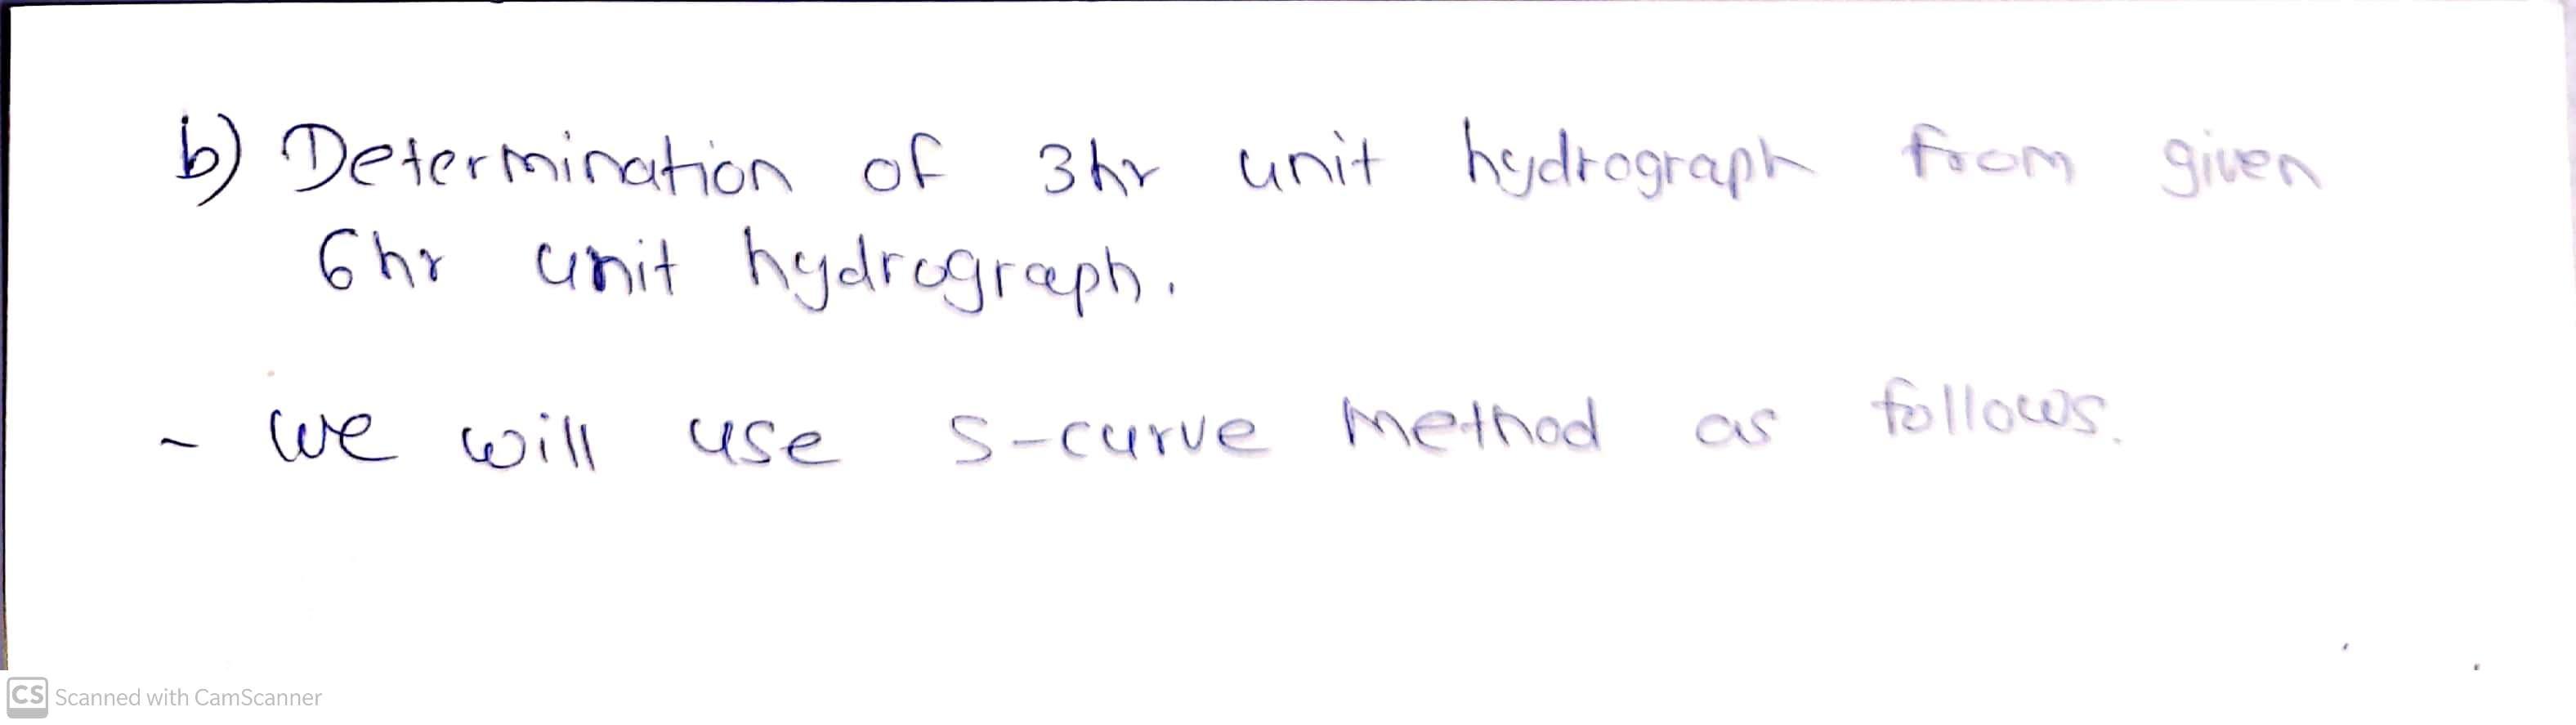 b) Determination of 3hr unit hydrograph from given
6hr unit hydrograph.
- we will use S-curve Method as follows.
CS Scanned with CamScanner